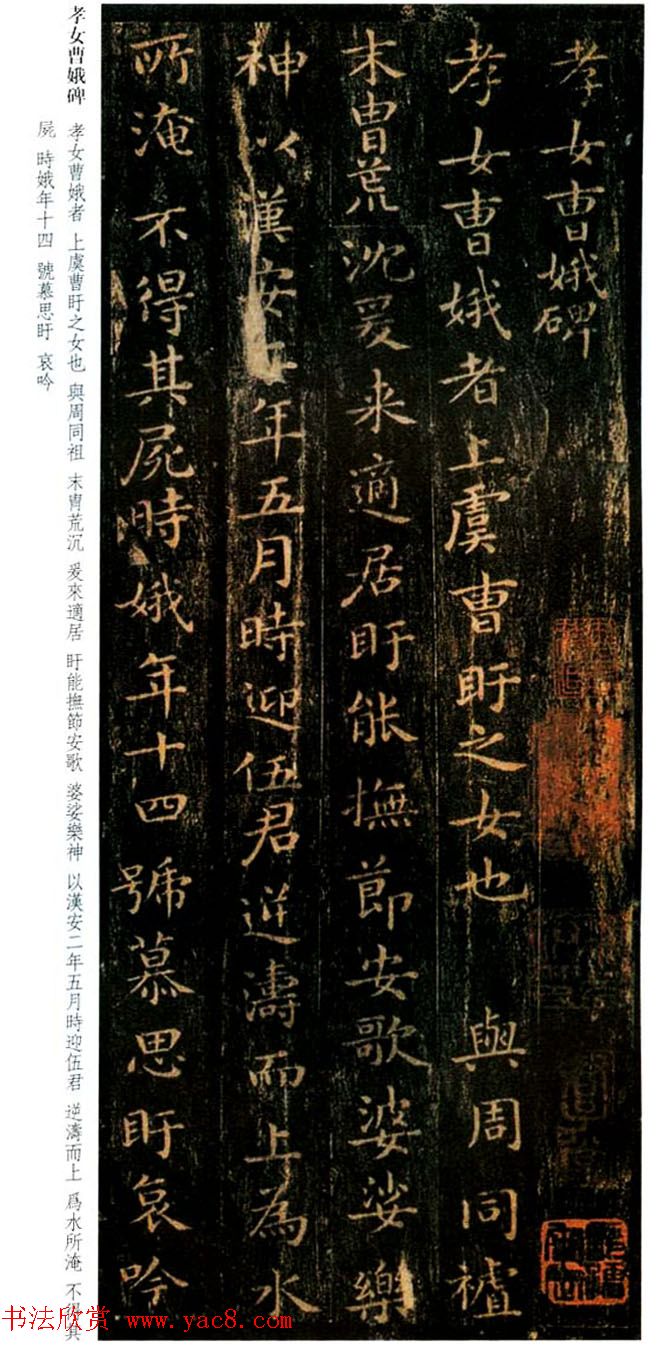 孝女曹娥碑
孝女曹娥者上虞曹盱之女也 與周同禃
末胄荒沈爰来適居盱能撫節安歌婆娑樂
神以漢安二年五月時迎伍君逆濤而上為水
所淹 不得其屍時娥年十四號慕思盱哀吟
孝女曹娥碑
孝女曹娥者 上虞曹盱之女也 與周同祖 末胄荒沉 爰來適居 盱能撫節安歌 婆娑樂神 以漢安二年五月時迎伍君 逆濤而上 爲水所淹 不得其
屍 時娥年十四 號慕思盱 哀吟
书法欣赏 www.yac8.com